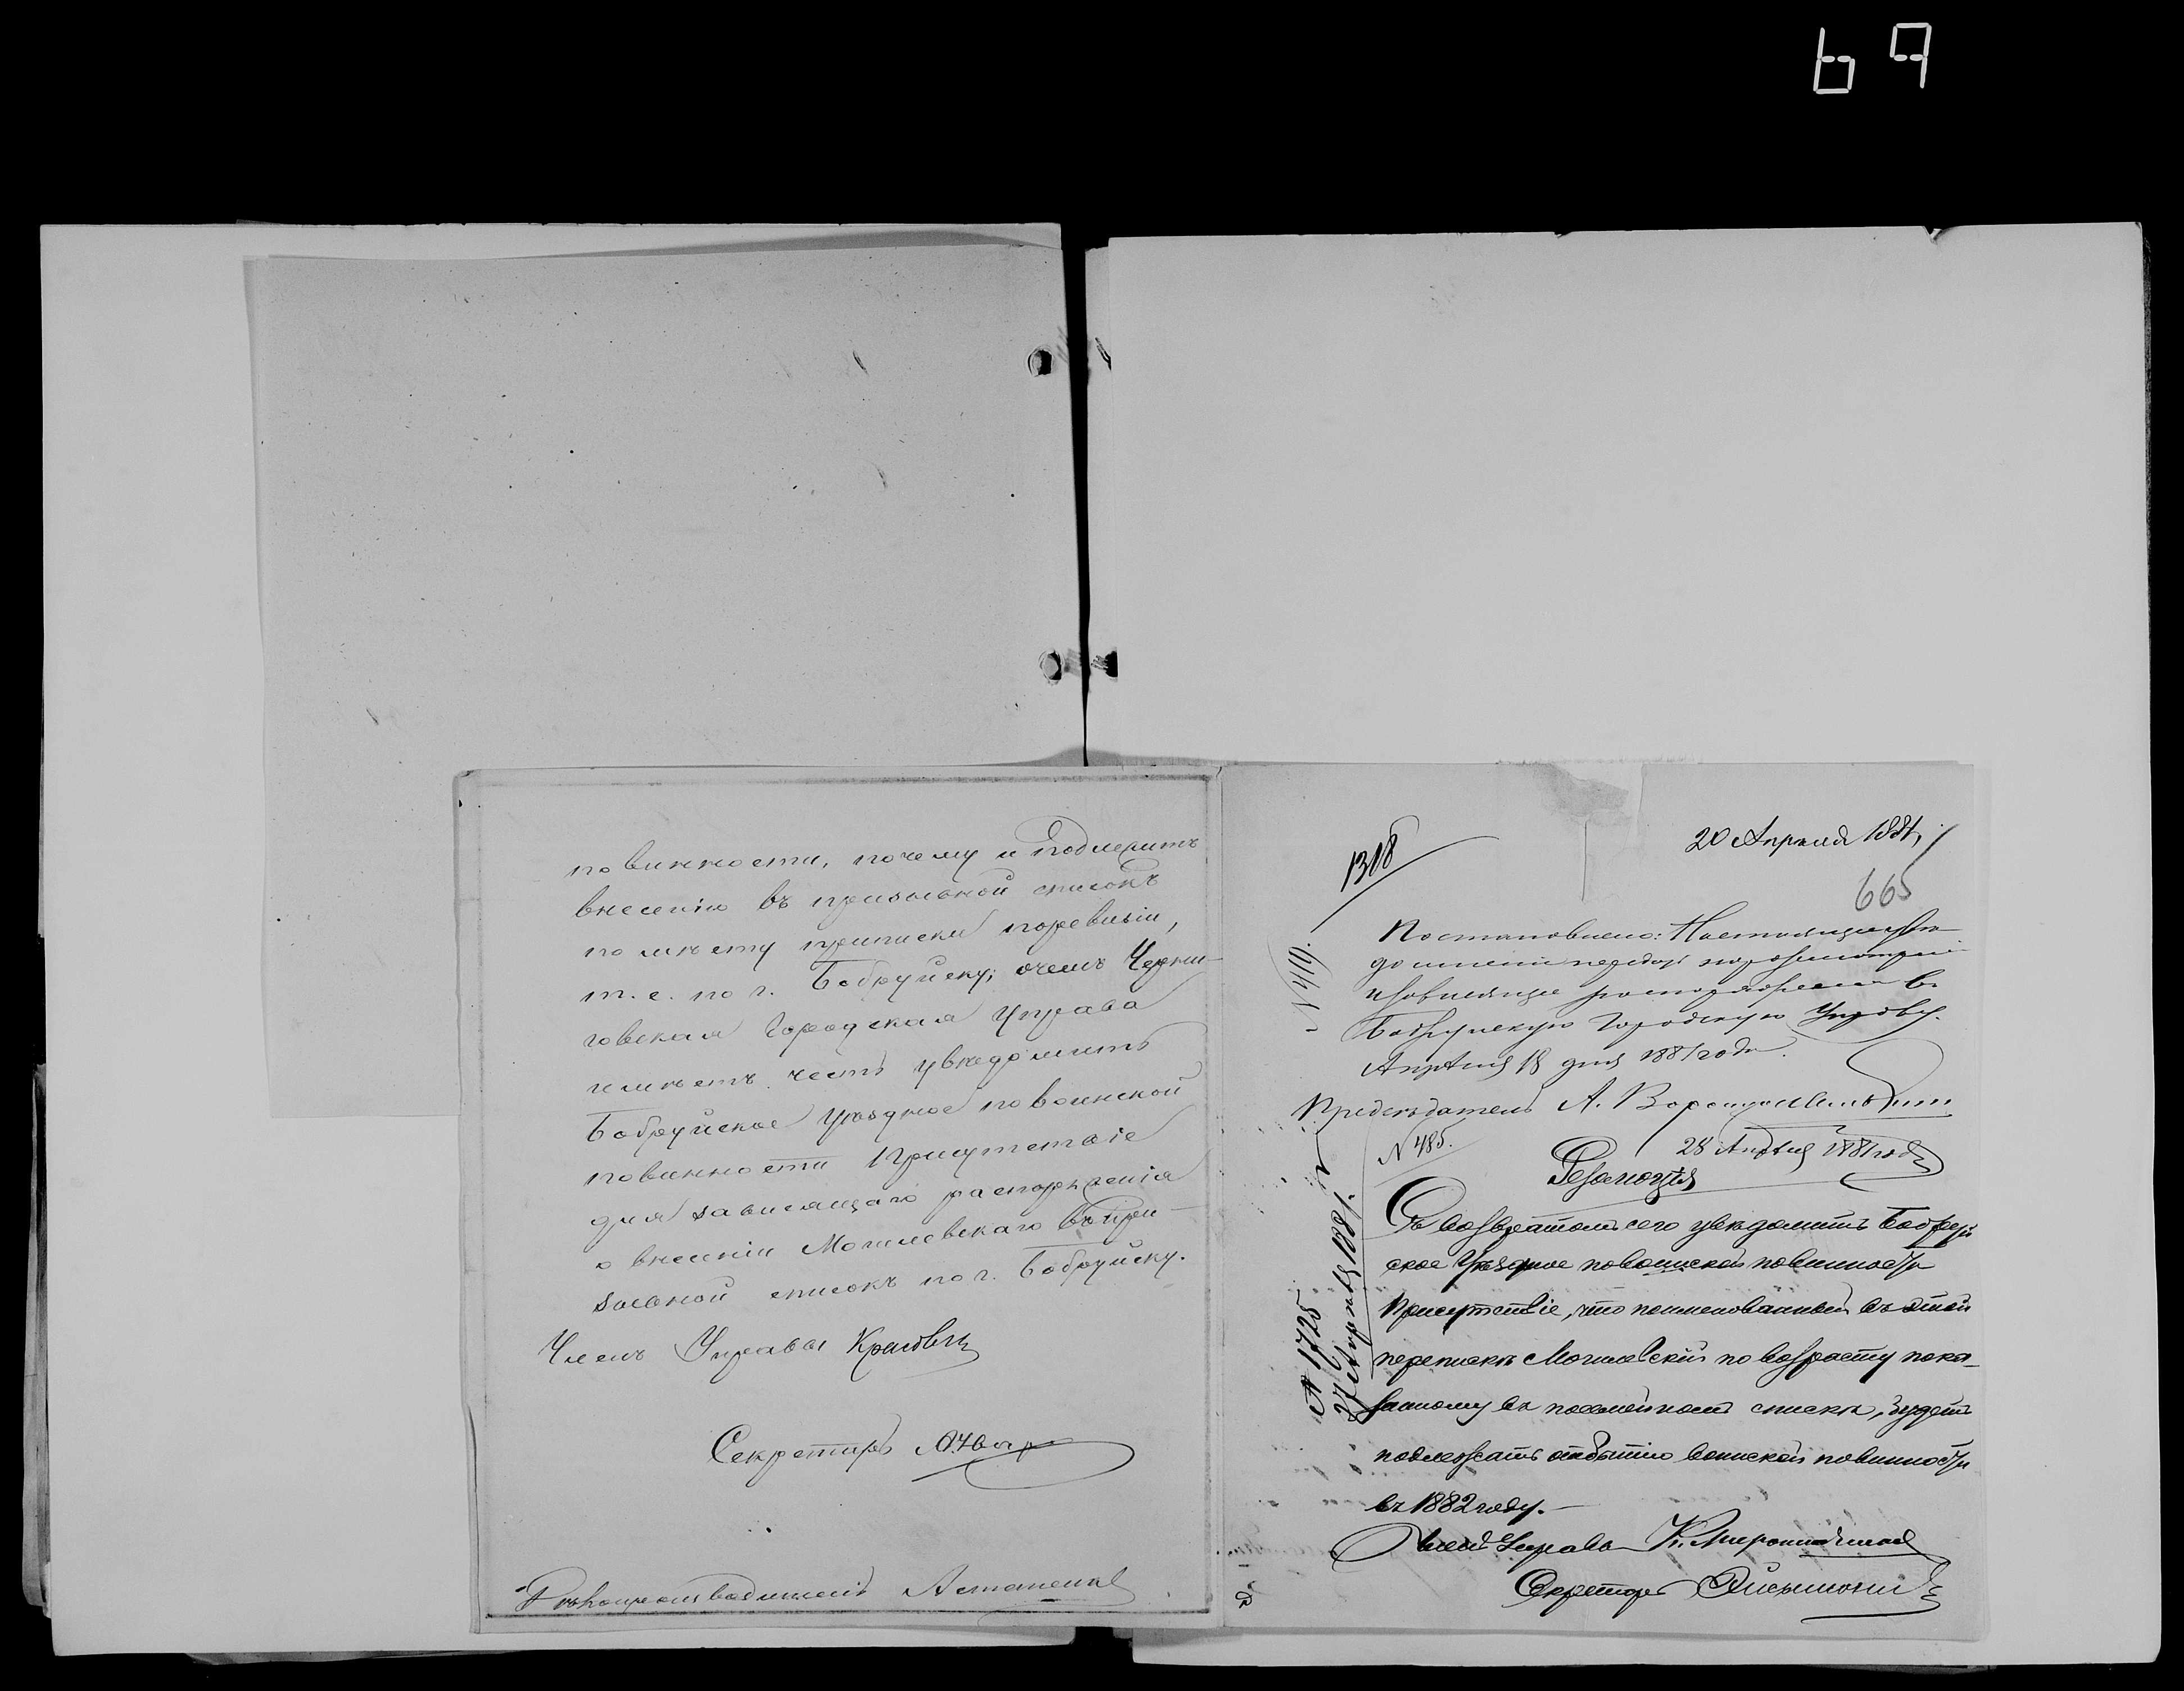 69
повинности, почему и подлежитъ
внесенію въ призывной списокъ
по мѣсту приписки поревизіи,
т. е. по г. Бобруйску; очемъ Черни-
говская Городская Управа
имѣетъ честь увѣдомить
Бобруйское Уѣздное по воинской
повинности Присутствіе
для зависящаго распоряженія
о внесеніи Могилевскаго въ при-
зывной списокъ по г. Бобруйску.
Членъ Управы
Секретарь
Дѣлопроизводитель
20 Апрѣля 1881,
1318
665
Постановлено: Настоящую
Бобруйскую Городскую Управу.
Апрѣля 18 дня 1881 года.
Предсѣдатель А.
N 419.
N 485.
28 Апрѣля 1881 года
Резолюція
Съ возвратомъ сего увѣдомить Бобруй
ское Уѣздное по воинской повинности
Присутствіе, что поименованный въ этой
перепискѣ Могилевскій по возрасту пока-
занному въ посемейномъ спискѣ, будетъ
подлежать отбытію воинской повинности
въ 1882 году.
Членъ Управы К.
Секретарь
N 1725
27 Апрѣля 1881 г.